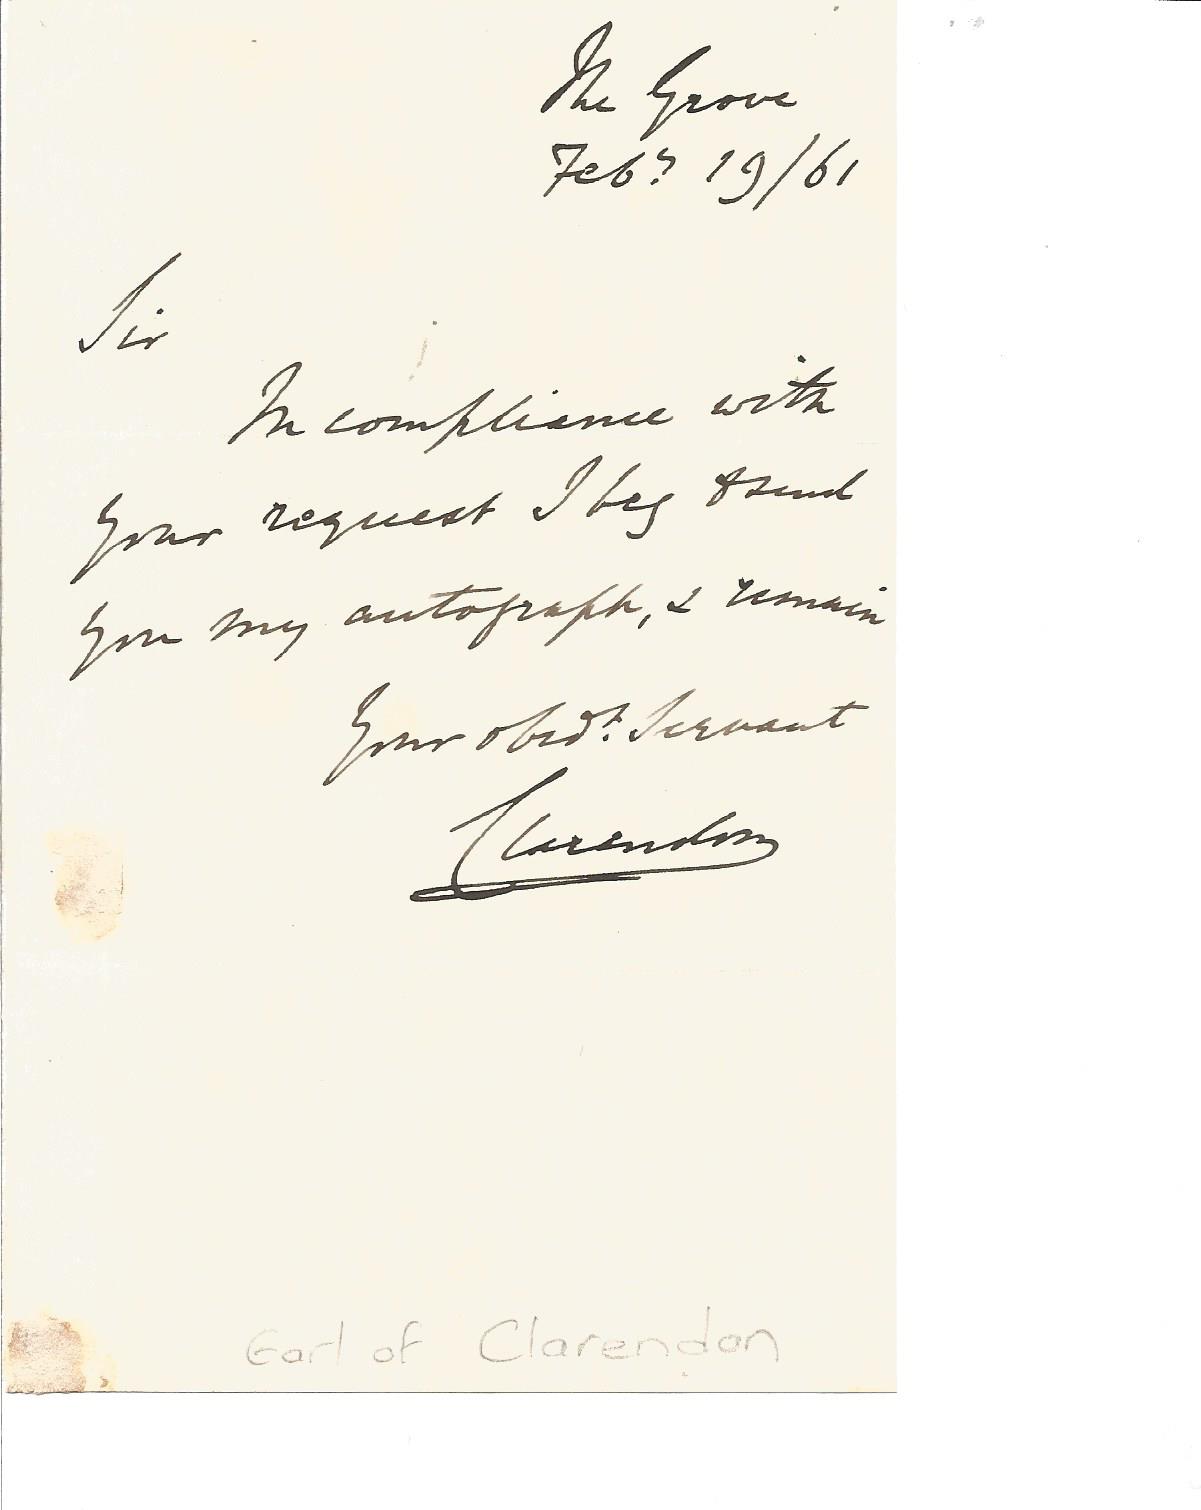 The Grove
Feby 19/61
Sir
In compliance with
your request I beg to send
you my autograph, & remain
Your obedt. Servant
Clarendon
Earl of Clarendon